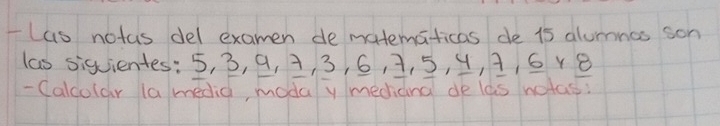 -Las notas del examen de matemáticas de 15 alumnos son
las siguientes: 5, 3, 9, 7, 3, 6, 7, 5, 4, 7, 6 y 8
-Calcular la media, moda y mediana de las notas: